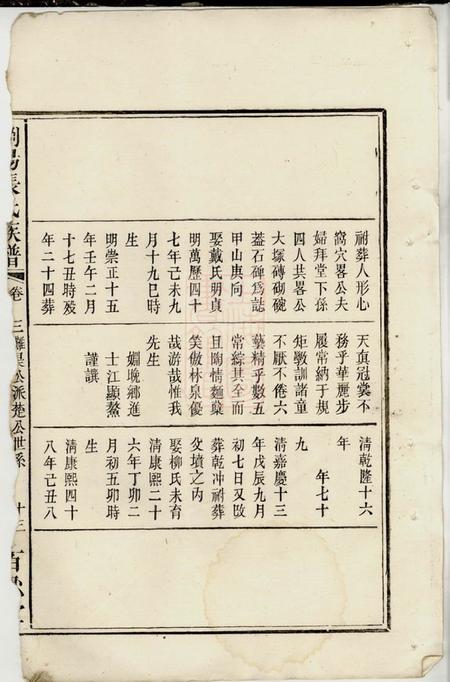 祔葬人形心
窩穴畧公夫
婦拜堂下係
四人共畧公
大塚磚砌碗
葢石碑爲誌
甲山庚向
娶戴氏明貞
明萬歷四十
七年己未九
月十九巳時
生
明崇正十五
年壬午二月
十七丑時歿
年二十四葬
天眞冠裳不
務乎華麗步
履常納于規
矩斅訓諸童
不厭不倦六
藝精乎數五
常綜其全而
且陶情麯蘖
笑傲林泉優
哉游哉惟我
先生
姻晚鄉進
士江顯鰲
謹譔
清乾隆十六
年
年七十
九
清嘉慶十三
年戊辰九月
初七日又啟
葬乾冲祔葬
父墳之丙
娶柳氏未育
清康熙二十
六年丁卯二
月初五卯時
生
清康熙四十
八年己丑八
瀏陽張氏族譜
卷三
公派楚公世系
十三